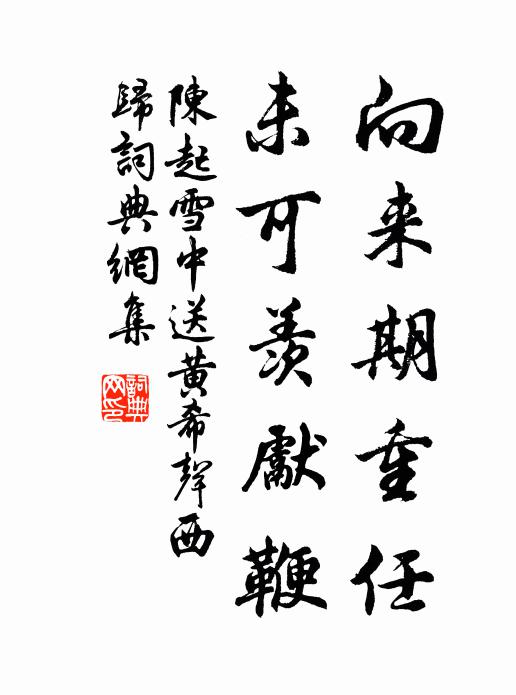 向来期重任
未可羨獻鞭
陳起雪中送黃希聲西
歸詞典網集
詞典
网印